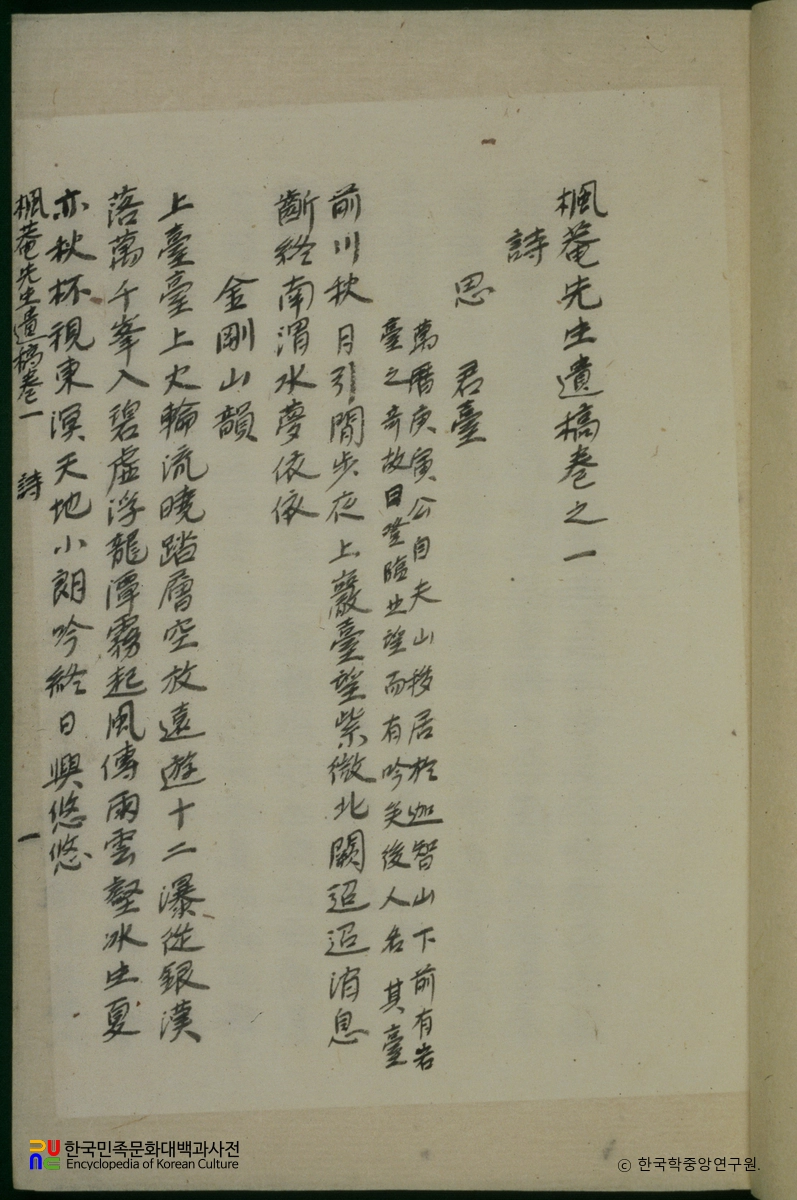 楓菴先生遺稿卷之一
詩
思 君臺
萬曆庚寅公自夫山移居於迦智山下前有岩
臺之奇故日登臨北望而有吟矣後人名 其臺
前川秋月引閒步夜上巖臺望紫微北闕迢迢消息
斷終南渭水夢依依
金剛山韻
上臺臺上火輪流曉踏層空放遠遊十二瀑從銀漢
落萬千峯入碧虛浮龍潭霧起風傳雨雲壑冰生夏
亦秋杯視東溟天地小朗吟終日興悠悠
楓菴先生遺稿卷一 詩 一
한국민족문화대백과사전
Encyclopedia of Korean Culture
© 한국학중앙연구원.